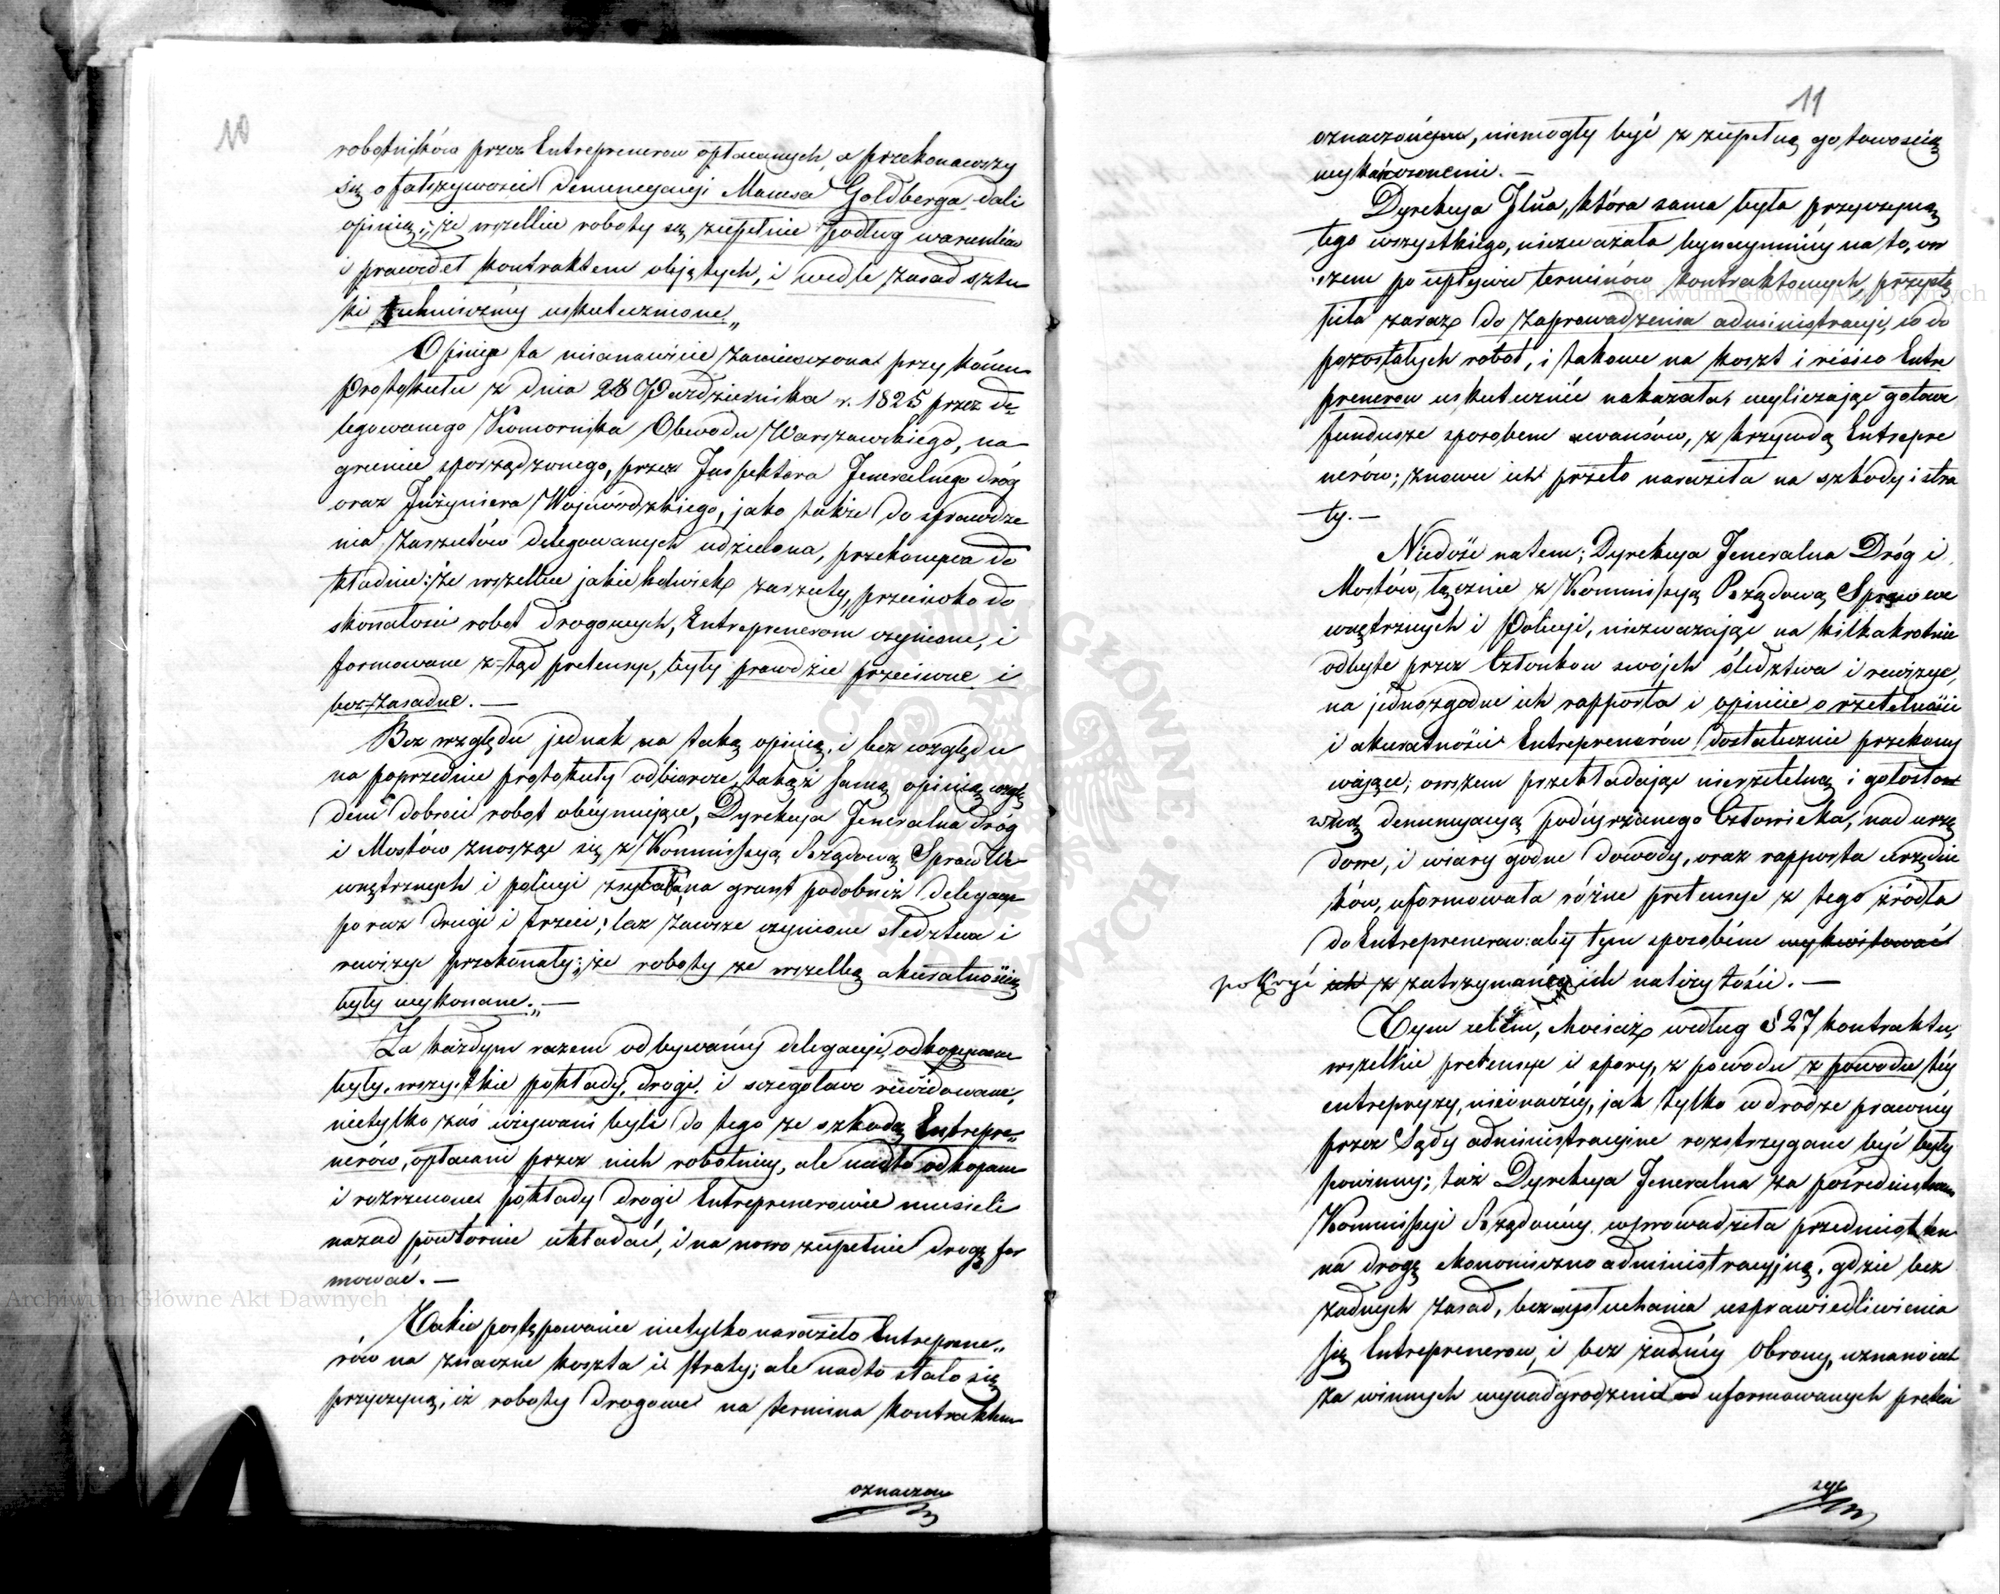 10
robotników przez Entreprenerow opłacanych, a przekonawszy
się o fałszywości denuncyacyi Moresa Goldberga dali
opinią; „że wszelkie roboty są zupełnie podług warunków
i prawideł kontraktem objętych, i wedle zasad sztu
ki technicznéy uskutecznione„
Opinia ta mianowicie zamieszczona przy końcu
Protokułu z dnia 28 Października r. 1825 przez de
legowanego Komornika Obwodu Warszawskiego, na
gruncie sporządzonego, przez Inspektora Jeneralnego dróg
oraz Inżyniera Wojewódzkiego, jako także do sprawdze
nia zarzutów delegowanych udzielona, przekonywa do
kładnie: że wszelkie jakiekolwiek zarzuty, przeciwko do
skonałości robot drogowych, Entreprenerom czynione, i
formowane z-tąd pretensye, były prawdzie przeciwne i
bez-zasadne. —
Bez względu jednak na taką opinią, i bez względu
na poprzednie protokuły odbiorcze, takąż samą opinią wzglę
dem dobroci robot obeymujące, Dyrekcya Jeneralna dróg
i Mostów znosząc się z Kommissyą Rządową Spraw We-
wnętrznych i policyi zsyłała na grunt podobnież delegacye
poraz drugi i trzeci; lecz zawsze czynione śledztwa i
rewizye przekonały; „że roboty ze wszelką akuratnością
były wykonane.„ —
Za każdym razem odbywanéy delegacyi, odkopywane
były wszystkie pokłady drogi, i szczegółowo rewidowane,
nietylko zaś używani byli do tego ze szkodą Entrepre„
nerów, opłacani przez nich robotnicy, ale nadto odkopane
i rozrzucone pokłady drogi Entreprenerowie musieli
nazad powtórnie układać, i na nowo zupełnie drogę for
mować. —
Takie postępowanie nietylko naraziło Entreprene„
rów na znaczne koszta i straty; ale nadto stało się
przyczyną, iż roboty drogowe na termina kontraktem
oznaczone
11
oznaczone, niemogły być z zupełną gotowością
wykończonemi. —
Dyrekcya Jlna, która sama była przyczyną
tego wszystkiego, niezważała bynaymniéy na to, ow
szem po upływie terminów kontraktowych, przystą
piła zaraz do zaprowadzenia administracyi, co do
pozostałych robot, i takowe na koszt i risico Entre
prenerow uskutecznić nakazała, wyliczając gotowe
fundusze sposobem awansów, z krzywdą Entrepre
nerów; znowu ich przeto naraziła na szkody i stra
ty. —
Niedość na tem; Dyrekcya Jeneralna Dróg i
Mostów, łącznie z Kommissyą Rządową Spraw we
wnętrznych i Policyi, niezważając na kilkakrotnie
odbyte przez Członkow swojch śledztwa i rewizye,
na jednozgodne ich rapporta i opiniie o rzetelności
i akuratności Entreprenerów dostatecznie przekony
wające; owszem przekładając nierzetelną i gołosłow
denuncyacyą podéyrzanego Człowieka, nad urzę
dowe, i wiary godne dowody, oraz rapporta urzędni
ków, uformowała różne pretensye z tego źródła
do Entreprenerow: aby tym sposobém wykwitować
pokryć ich z zatrzymania ich należytości. —
Tym celem, chociaż według § 27 kontraktu,
wszelkie pretensye i spory, z powodu z powodu téy
entrepryzy, nieinaczéy, jak tylko w drodze prawnéy
przez Sądy administracyine rozstrzygane być były
powinny; taż Dyrekcya Jeneralna za pośrednictwem
Kommissyi Rządowéy wprowadziła przedmiot ten
na drogę ekonomiczno administracyjną, gdzie bez
żadnych zasad, bez wysłuchania usprawiedliwienia
się Entreprenerow, i bez żadnéy obrony, uznano ich
za winnych wynadgrodzenia uformowanych preten
syi